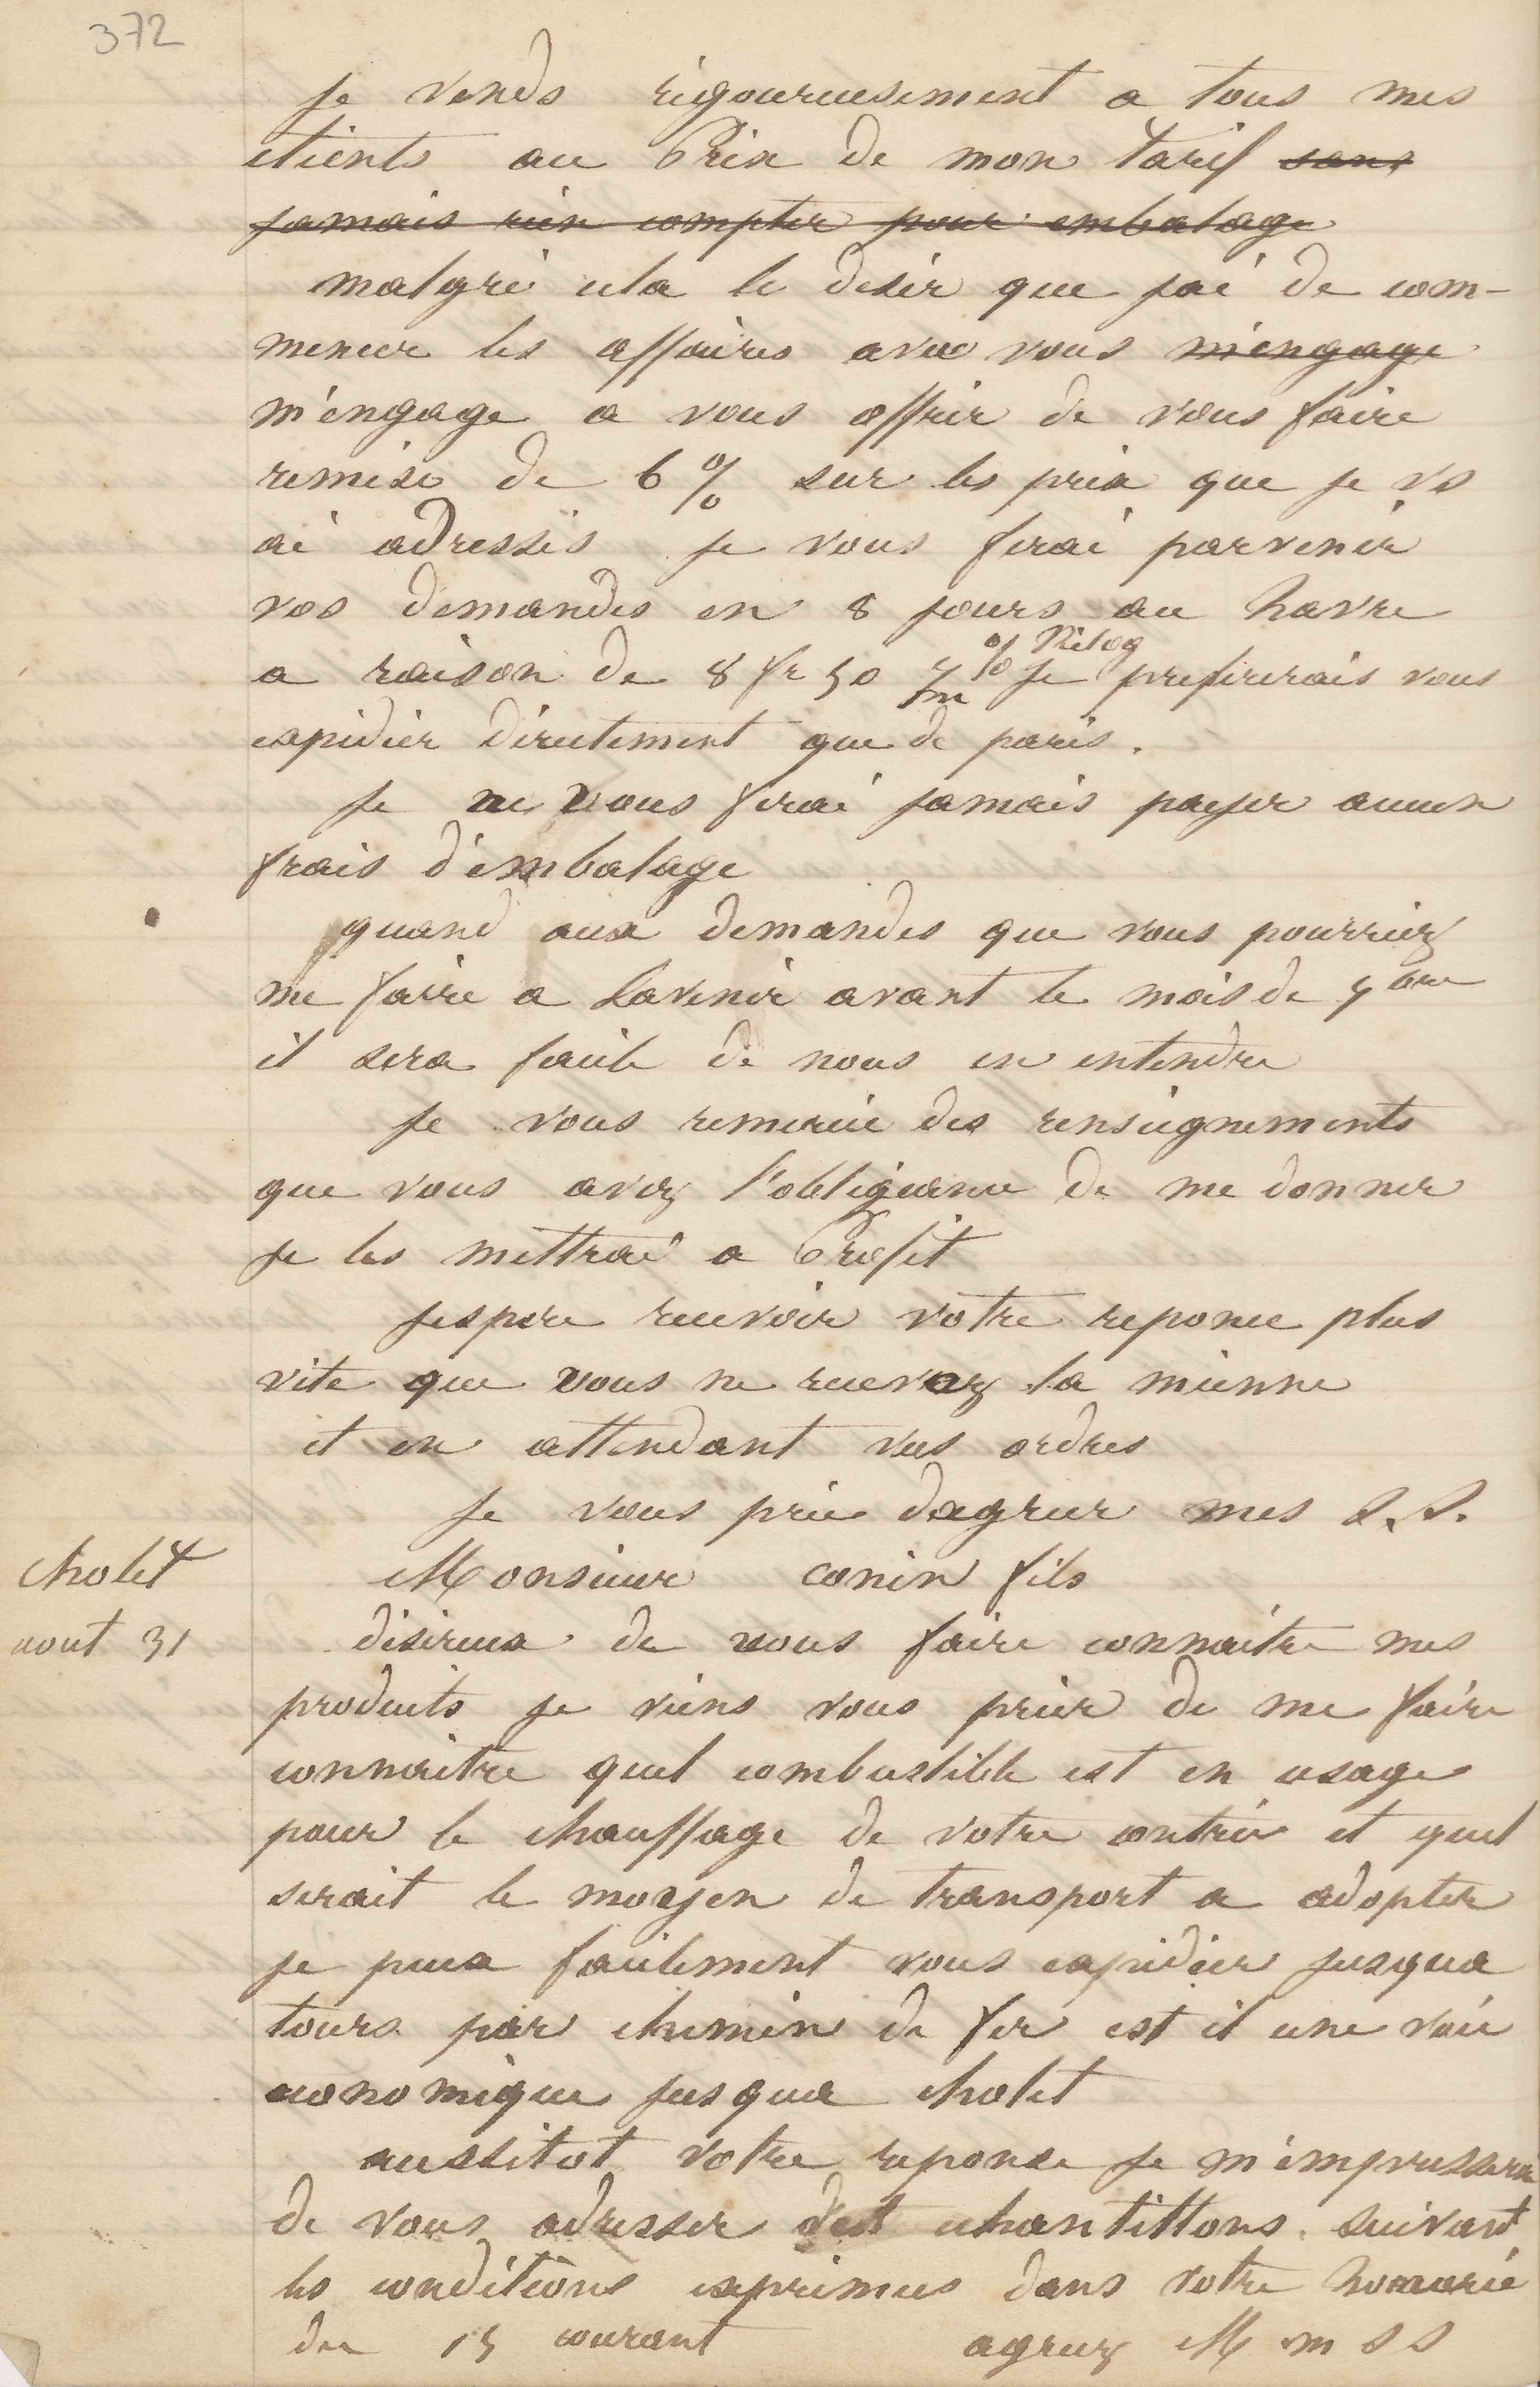 372
je vends rigoureusement a tous mes
clients au Prix de mon tarif sans
jamais rien compter pour embalage
malgré cela le desir que jai de com-
mencer les affaires avec vous m'engage
m'engage a vous offrir de vous faire
remise de 6 % sur les prix que je vs
ai adressés je vous ferai parvenir
vos demandes en 8 jours au havre
a raison de 8 fr 50 % Kilog je prefererais vous
expidier directement que de paris.
je ne vous ferai jamais payer aucun
frais d'embalage
quand aux demandes que vous pourriez
me faire a Lavenir avant le mois de 9bre
il sera facile de nous en entendre
je vous remercie des renseignements
que vous avez l'obligeance de me donner
je les mettrai a Profit
jespere recevoir votre reponce plus
vite que vous ne recevez la mienne
et en attendant vos ordres
je vous prie dagreer mes S. S.
cholet
aout 31
Monsieur conin fils
désireux de vous faire connaitre mes
produits je viens vous prier de me faire
connaitre quel combustible est en usage
pour le chauffage de votre contrée et quel
serait le moyen de transport a adopter
je peux facilement vous expidier jusqua
tours par chemin de fer est il une voie
economique jusqua cholet
aussitot votre reponse je m'empresserai
de vous adresser des echantillons suivant
les conditions exprimees dans votre honorée
du 15 courant agreez M m S S